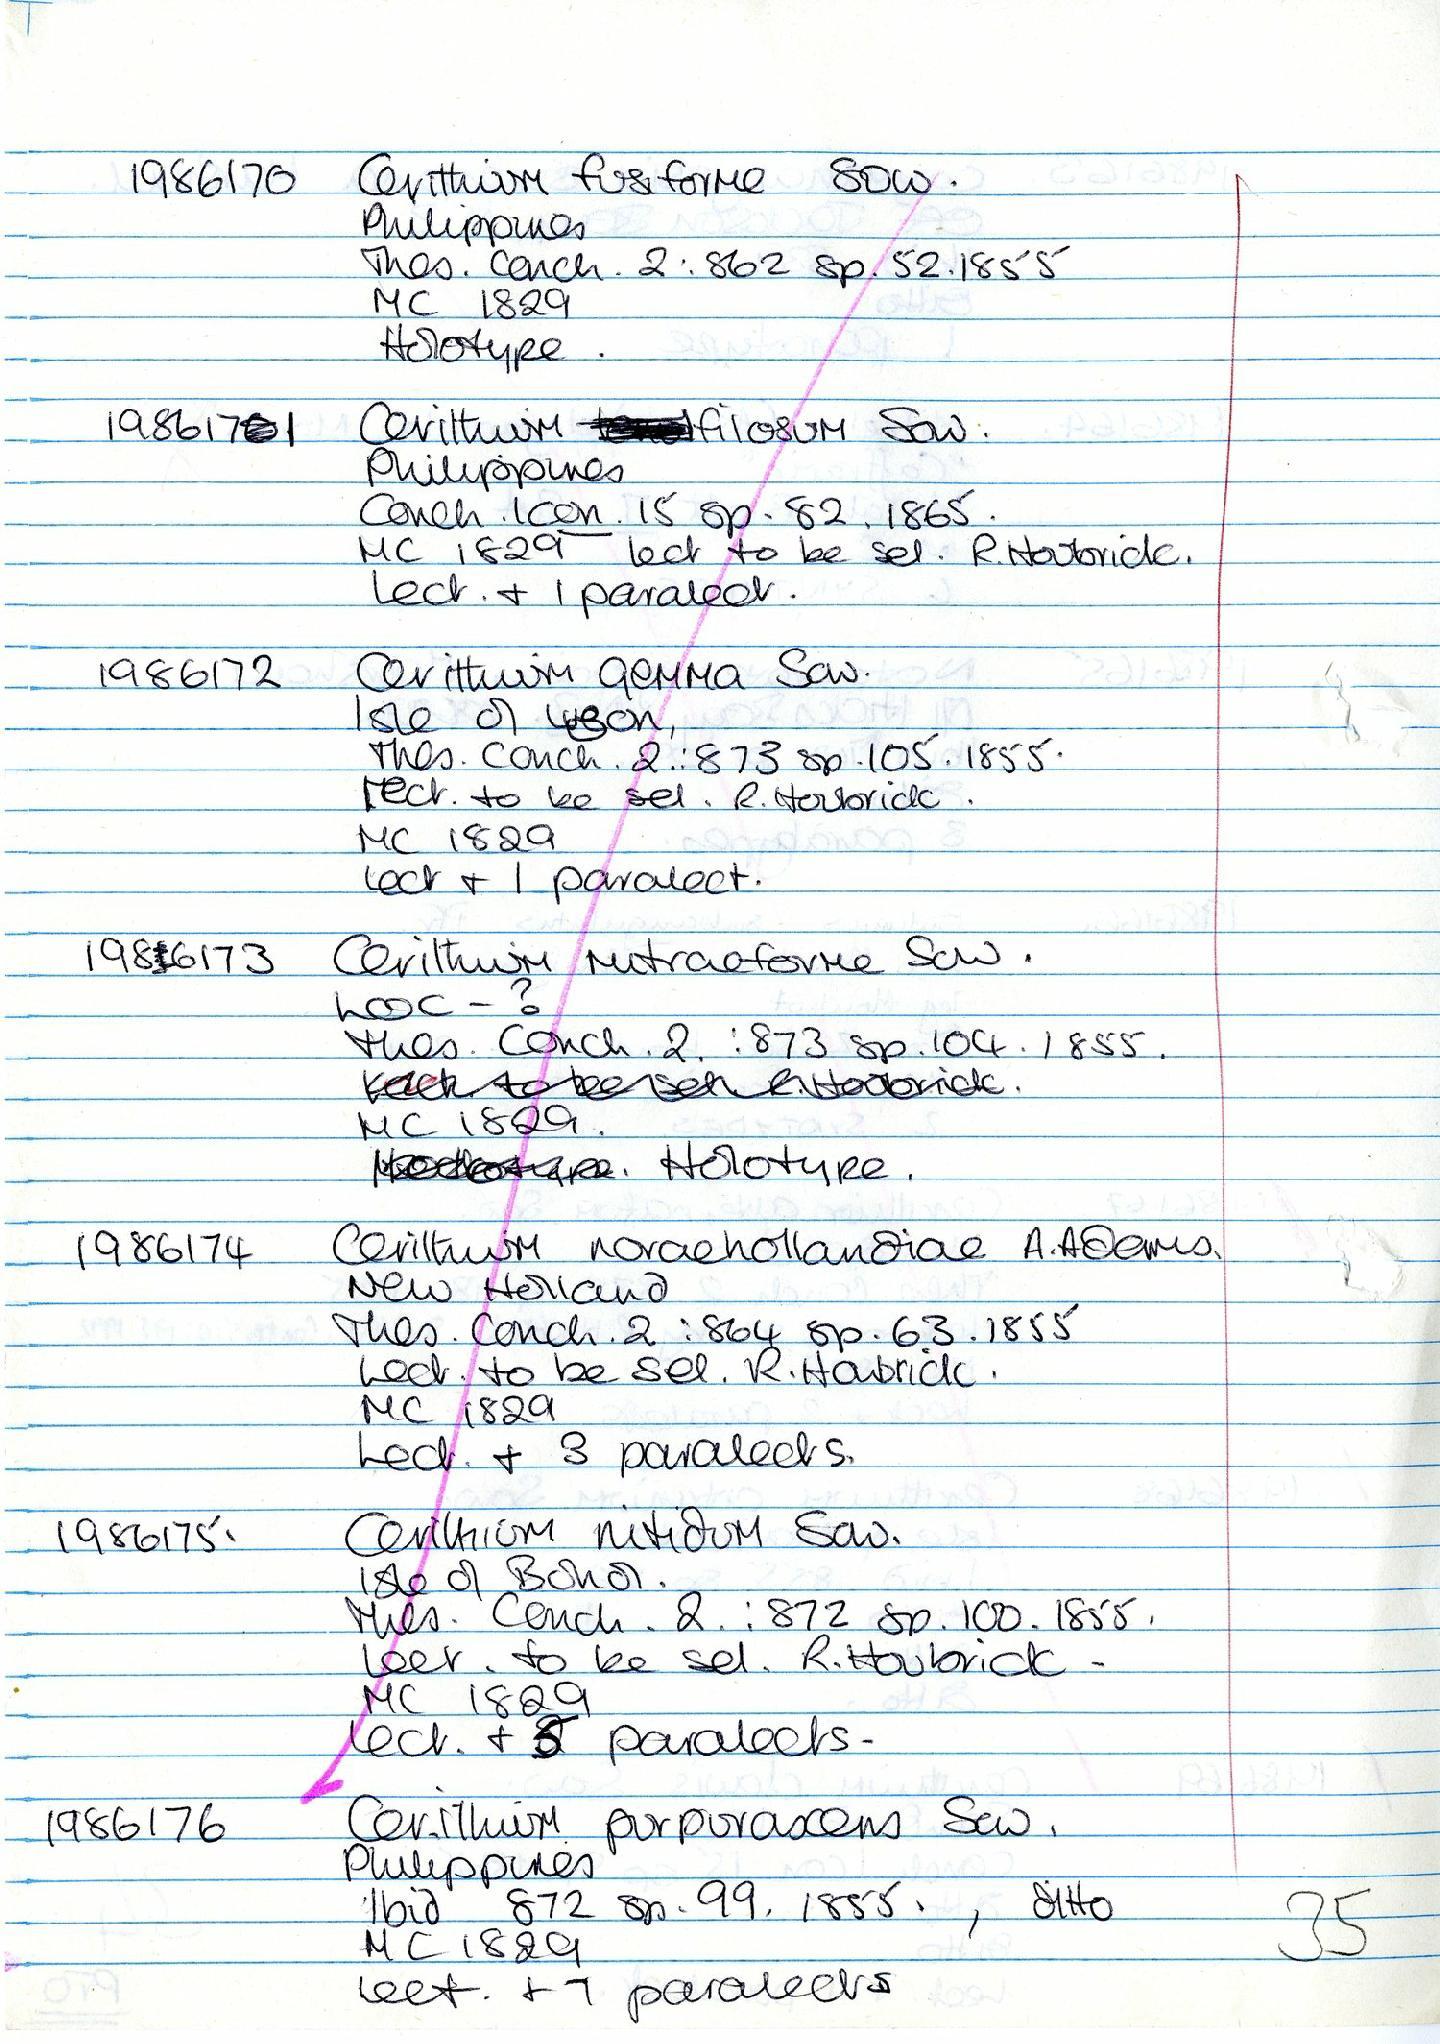 1986170 Cerithium fusiforme Sow.
Philippines
Thes. Conch. 2.:862 sp. 52.1855
MC 1829
Holotype.
1986171 Cerithium filosum Sow.
Philippines
Conch. Icon. 15 sp. 82. 1865.
MC 1829 Lect to be sel. R. Houbrick.
Lect. + 1 paralect.
1986172 Cerithium gemma Sow.
Isle of Luzon,
Thes. Conch. 2.:873 sp. 105. 1855.
Lect. to be sel. R. Houbrick.
MC 1829
Lect + 1 paralect.
1986173 Cerithium mitraeforme Sow.
Loc - ?
Thes. Conch. 2. :873 sp. 104. 1855.
Lect. to be sel R. Houbrick.
MC 1829.
Holotype.
1986174 Cerithium novaehollandiae A. Adams.
New Holland
Thes. Conch. 2 :864 sp. 63. 1855
Lect. to be sel. R. Houbrick.
MC 1829
Lect. + 3 paralects.
1986175. Cerithium nitidum Sow.
Isle of Bohol.
Thes. Conch. 2. :872 sp. 100. 1855.
Lect. to be sel. R. Houbrick -
MC 1829
Lect. + paralects -
1986176 Cerithium purpurascens Sow.
Philippines
Ibid 872 sp. 99. 1855. , ditto
MC 1829
Lect. + 7 paralects
35